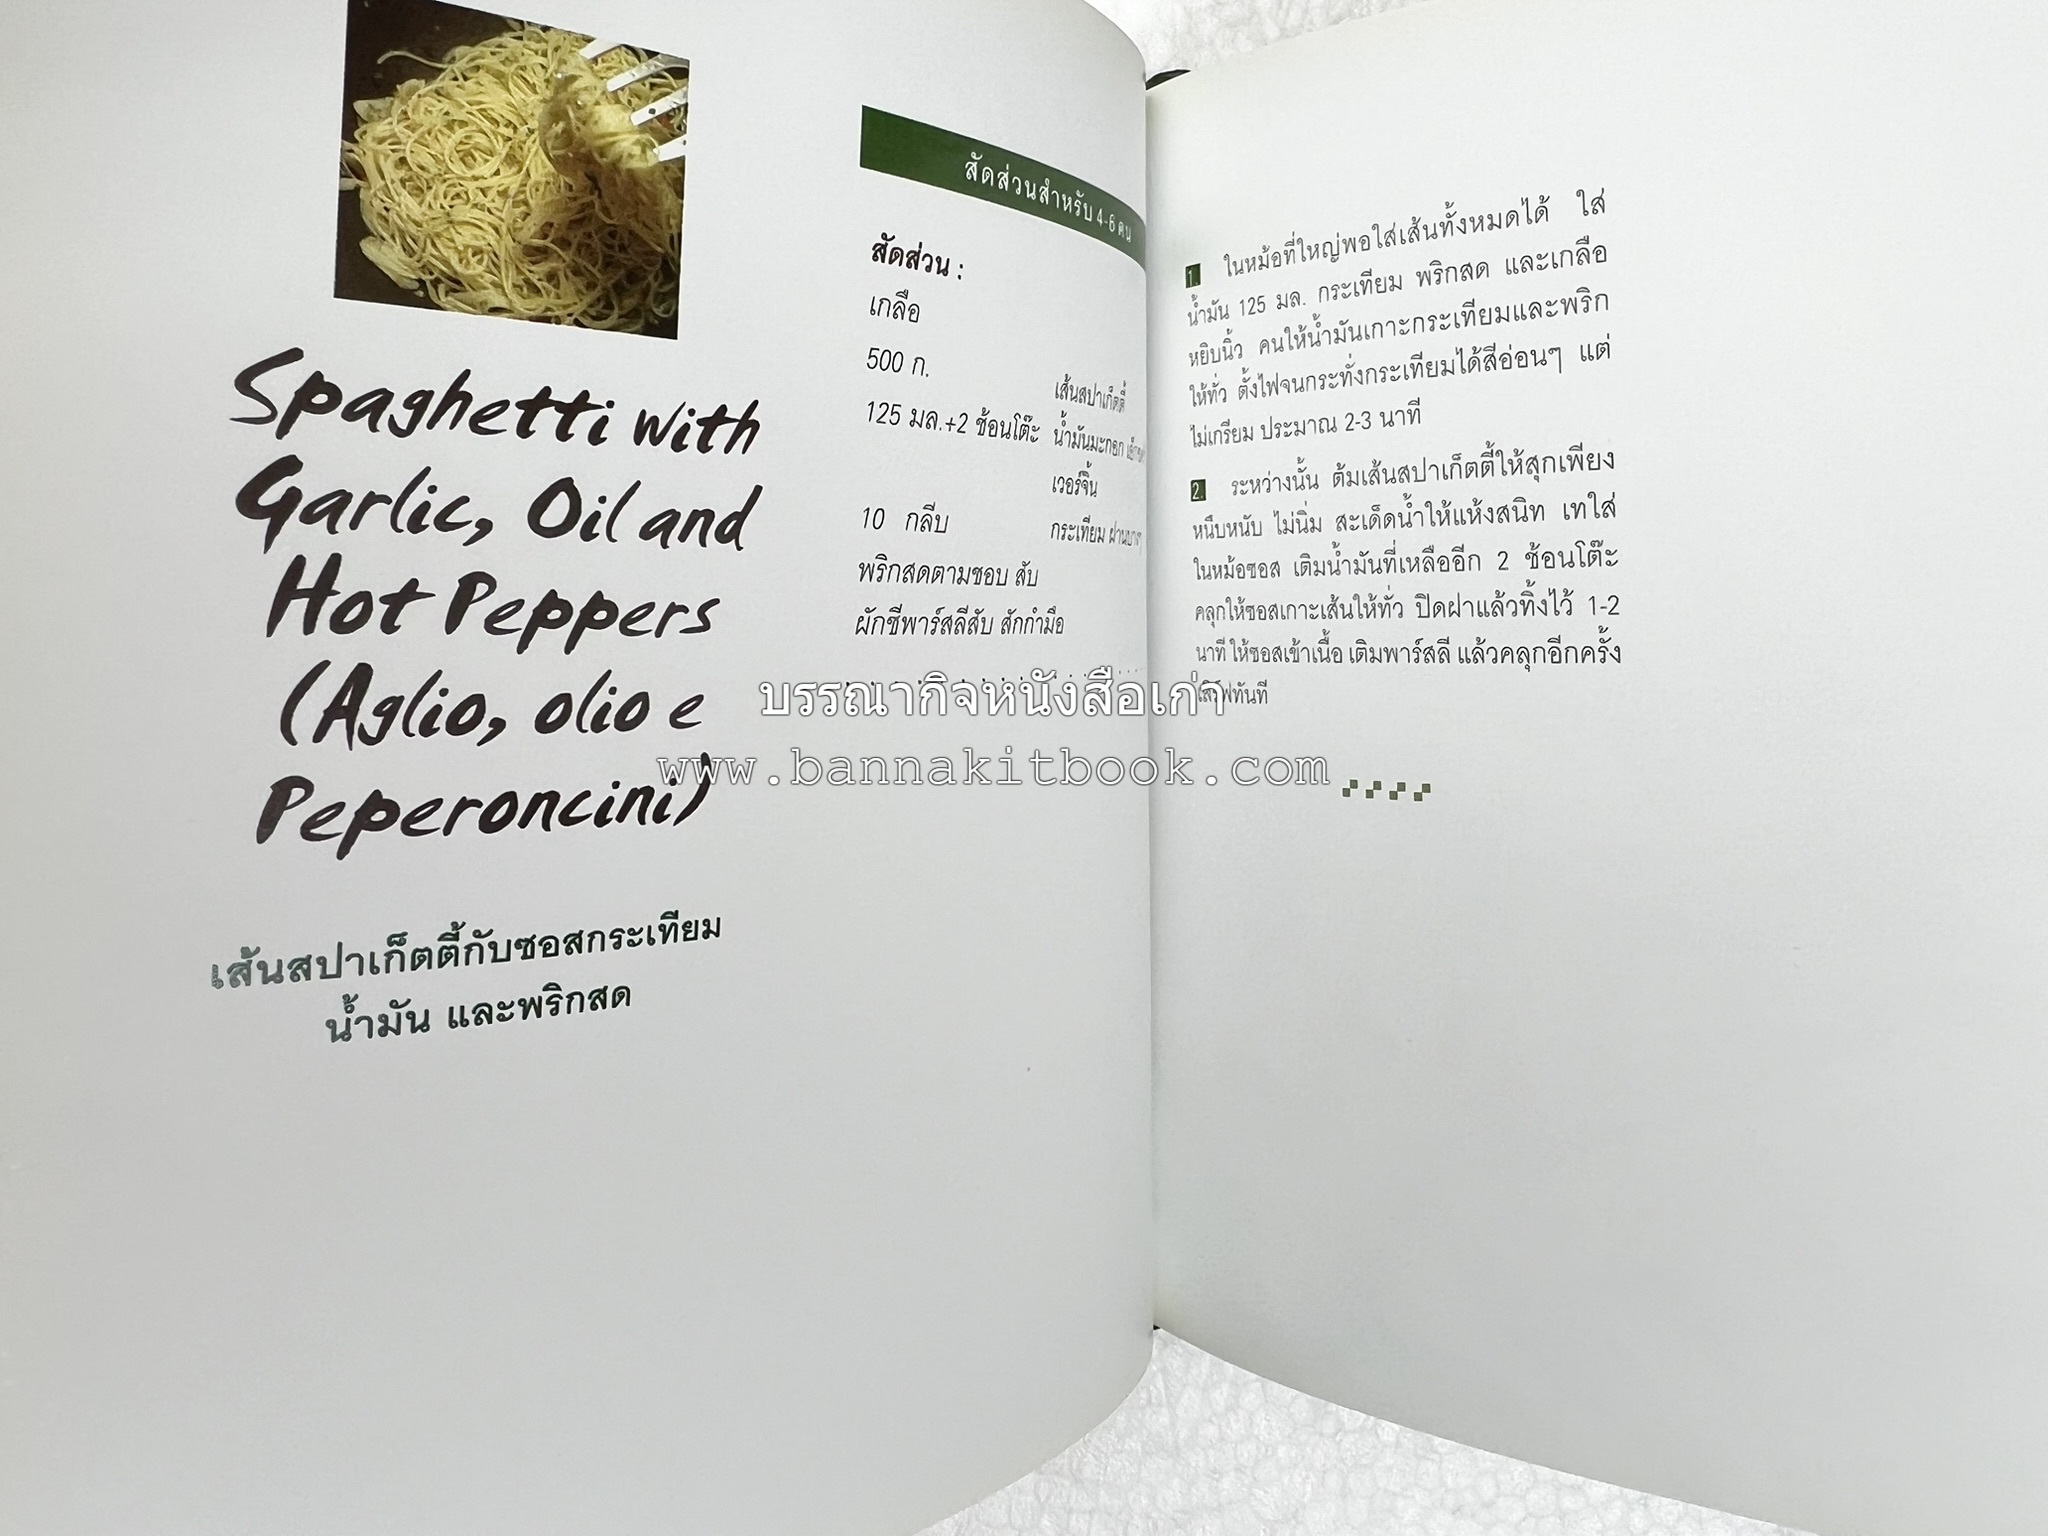 Spaghetti with
Garlic, Oil and
Hot Peppers
(Aglio, olio e
Peperoncini)
เส้นสปาเก็ตตี้กับซอสกระเทียม
น้ำมัน และพริกสด
สัดส่วนสำหรับ 4-6 คน
สัดส่วน :
เกลือ
500 ก. เส้นสปาเก็ตตี้
125 มล.+2 ช้อนโต๊ะ น้ำมันมะกอก
เวอร์จิ้น
10 กลีบ กระเทียม ฝานบางๆ
พริกสดตามชอบ สับ
ผักชีพาร์สลีสับ สักกำมือ
1. ในหม้อที่ใหญ่พอใส่เส้นทั้งหมดได้ ใส่
น้ำมัน 125 มล. กระเทียม พริกสด และเกลือ
หยิบนิ้ว คนให้น้ำมันเกาะกระเทียมและพริก
ให้ทั่ว ตั้งไฟจนกระทั่งกระเทียมได้สีอ่อนๆ แต่
ไม่เกรียม ประมาณ 2-3 นาที
2. ระหว่างนั้น ต้มเส้นสปาเก็ตตี้ให้สุกเพียง
หนึบหนับ ไม่นิ่ม สะเด็ดน้ำให้แห้งสนิท เทใส่
ในหม้อซอส เติมน้ำมันที่เหลืออีก 2 ช้อนโต๊ะ
คลุกให้ซอสเกาะเส้นให้ทั่ว ปิดฝาแล้วทิ้งไว้ 1-2
นาที ให้ซอสเข้าเนื้อ เติมพาร์สลี แล้วคลุกอีกครั้ง
เสิร์ฟทันที
บรรณากิจหนังสือเก่า
www.bannakitbook.com